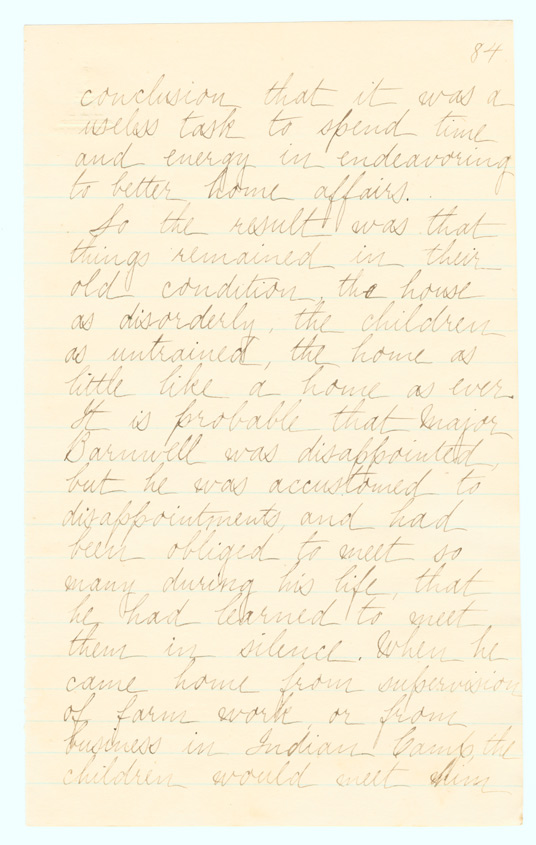 84
conclusion that it was a
useless task to spend time
and energy in endeavoring
to better home affairs.
So the result was that
things remained in their
old condition, the house
as disorderly, the children
as untrained, the home as
little like a home as ever.
It is probable that Major
Barnwell was disappointed,
but he was accustomed to
disappointments, and had
been obliged to meet so
many during his life, that
he had learned to meet
them in silence. When he
came home from supervision
of farm work, or from
business in Indian Camp, the
children would meet him